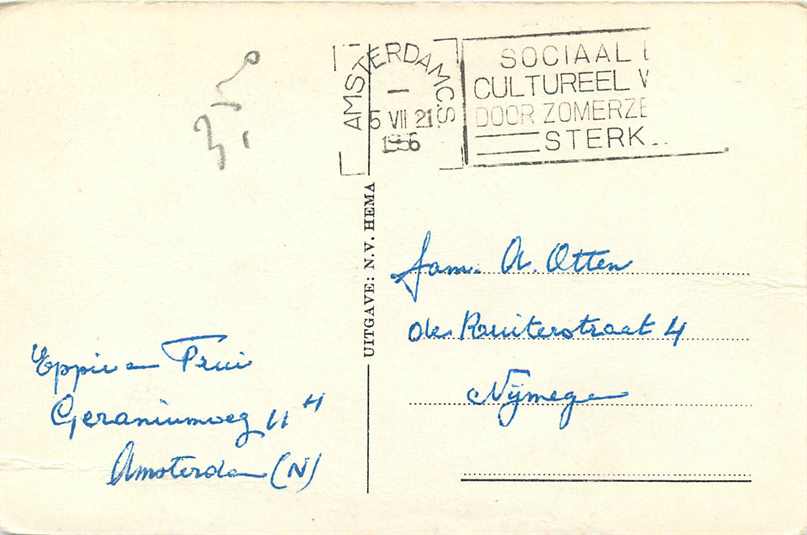 AMSTERDAM C.S.
5 VII 21
1956
SOCIAAL
CULTUREEL
DOOR ZOMERZE
STERK
UITGAVE: N.V. HEMA
Fam. A. Otten
de Ruiterstraat 4
Nijmegen
Eppie en Trui
Geraniumweg 11 H
Amsterdam (N)